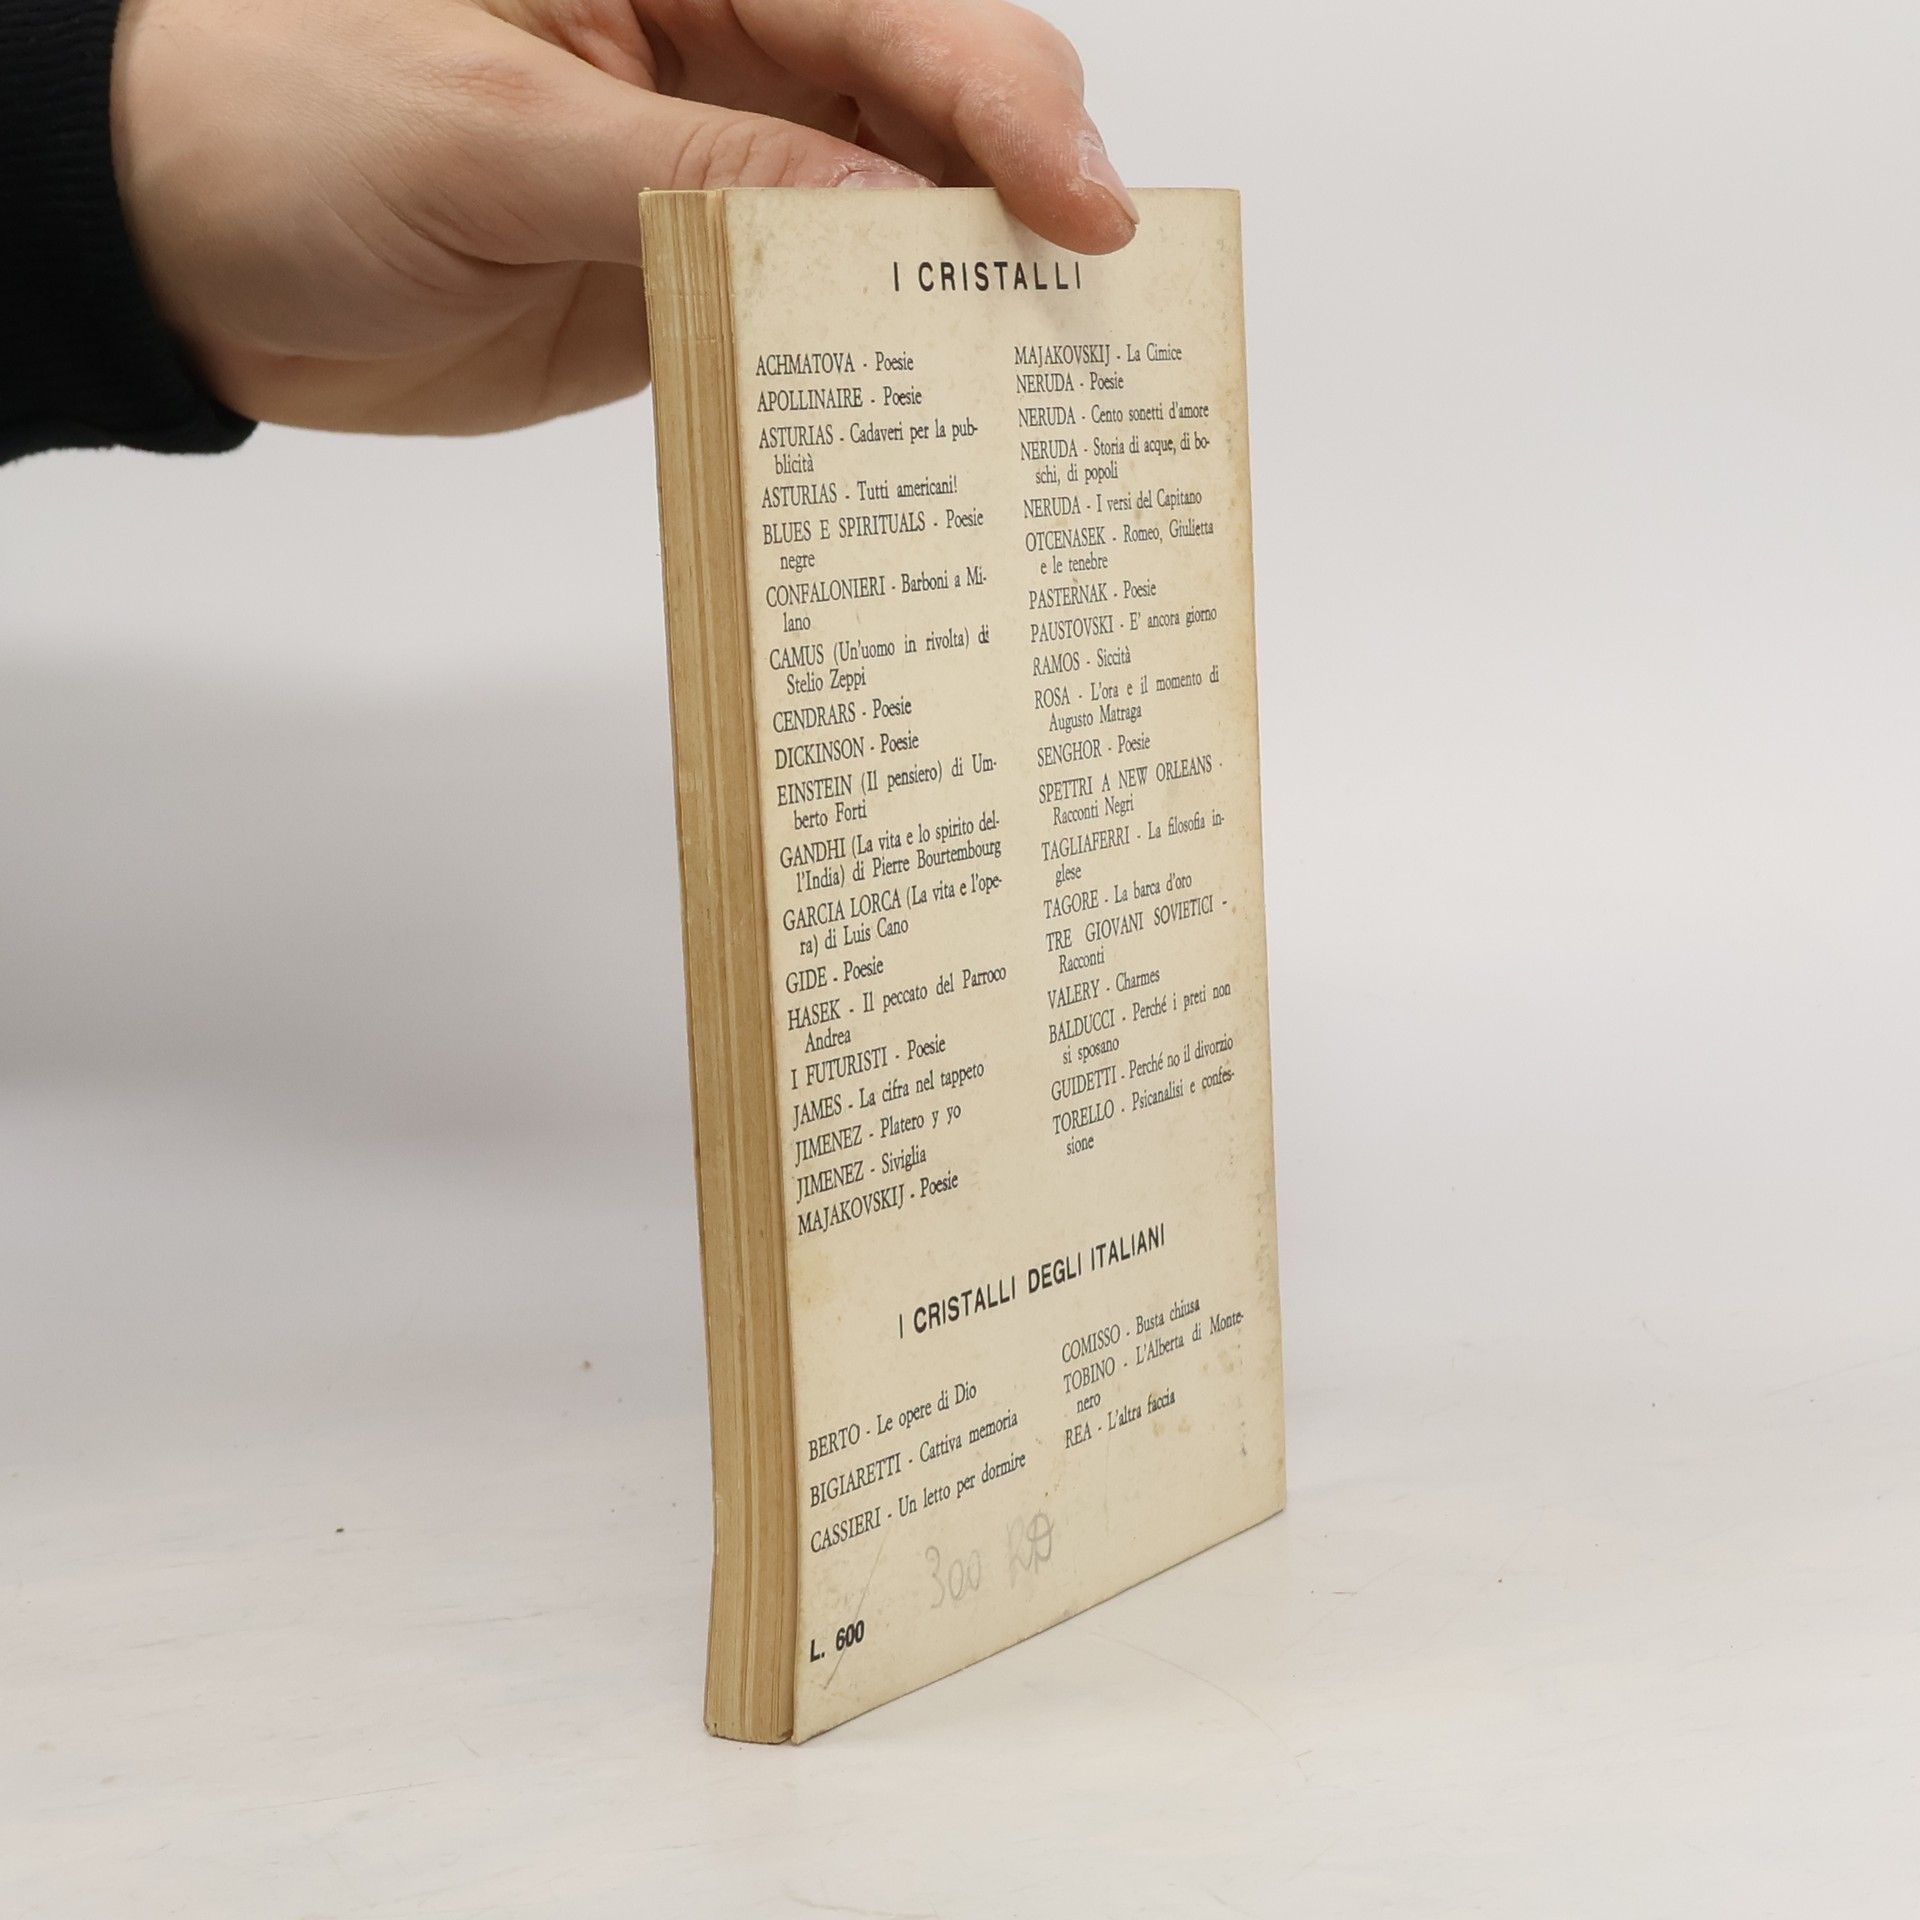 I CRISTALLI
ACHMATOVA - Poesie
APOLLINAIRE - Poesie
ASTURIAS - Cadaveri per la pub-
blicità
ASTURIAS - Tutti americani!
BLUES E SPIRITUALS - Poesie
negre
CONFALONIERI - Barboni a Mi-
lano
CAMUS (Un'uomo in rivolta) di
Stelio Zeppi
CENDRARS - Poesie
DICKINSON - Poesie
EINSTEIN (Il pensiero) di Um-
berto Forti
GANDHI (La vita e lo spirito del-
l'India) di Pierre Bourtembourg
GARCIA LORCA (La vita e l'ope-
ra) di Luis Cano
GIDE - Poesie
HASEK - Il peccato del Parroco
Andrea
I FUTURISTI - Poesie
JAMES - La cifra nel tappeto
JIMENEZ - Platero y yo
JIMENEZ - Siviglia
MAJAKOVSKIJ - Poesie
MAJAKOVSKIJ - La Cimice
NERUDA - Poesie
NERUDA - Cento sonetti d'amore
NERUDA - Storia di acque, di bo-
schi, di popoli
NERUDA - I versi del Capitano
OTCENASEK - Romeo, Giulietta
e le tenebre
PASTERNAK - Poesie
PAUSTOVSKI - E' ancora giorno
RAMOS - Siccità
ROSA - L'ora e il momento di
Augusto Matraga
SENGHOR - Poesie
SPETTRI A NEW ORLEANS -
Racconti Negri
TAGLIAFERRI - La filosofia in-
glese
TAGORE - La barca d'oro
TRE GIOVANI SOVIETICI -
Racconti
VALERY - Charmes
BALDUCCI - Perché i preti non
si sposano
GUIDETTI - Perché no il divorzio
TORELLO - Psicanalisi e confes-
sione
I CRISTALLI DEGLI ITALIANI
BERTO - Le opere di Dio
BIGIARETTI - Cattiva memoria
CASSIERI - Un letto per dormire
COMISSO - Busta chiusa
TOBINO - L'Alberta di Monte-
nero
REA - L'altra faccia
300
L. 600